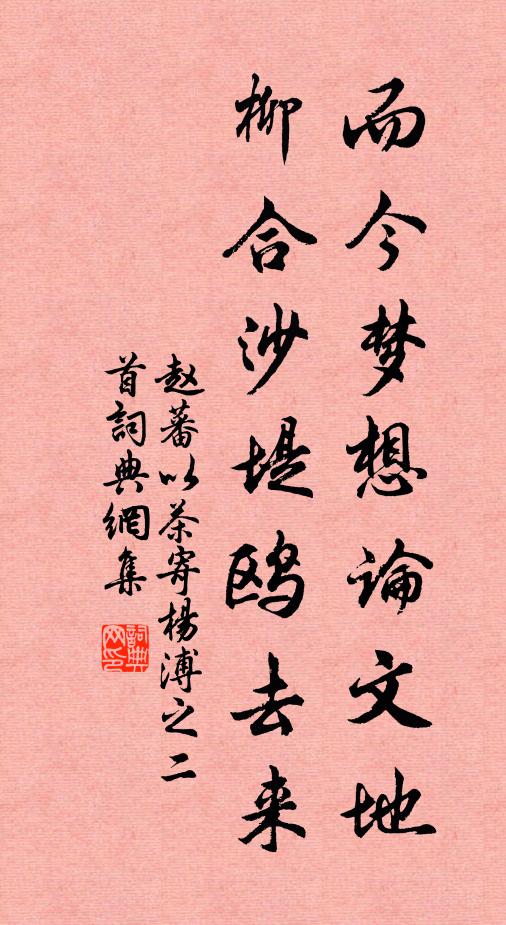 而今梦想論文地
柳合沙堤鸥去来
赵蕃以茶寄楊溥之二
首詞典網集
詞典
网印